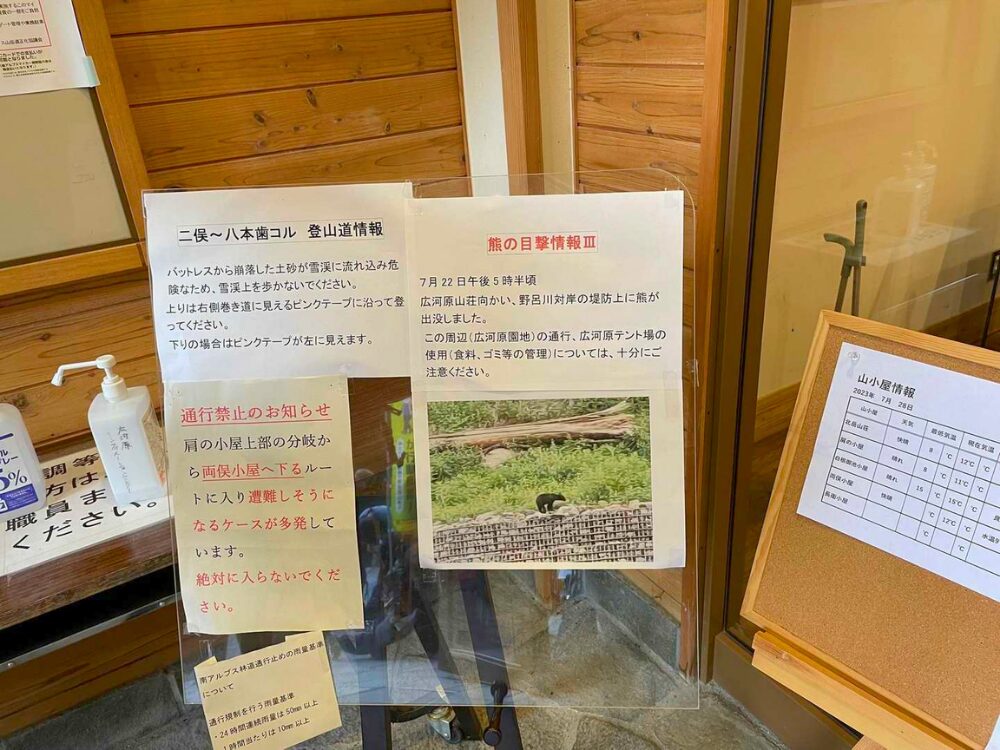 二俣～八本歯コル 登山道情報
バットレスから崩落した土砂が雪渓に流れ込み危
険なため、雪渓上を歩かないでください。
上りは右側巻き道に見えるピンクテープに沿って登
ってください。
下りの場合はピンクテープが左に見えます。
熊の目撃情報Ⅲ
7月22日午後5時半頃
広河原山荘向かい、野呂川対岸の堤防上に熊が
出没しました。
この周辺(広河原園地)の通行、広河原テント場の
使用(食料、ゴミ等の管理)については、十分にご
注意ください。
通行禁止のお知らせ
肩の小屋上部の分岐か
ら両俣小屋へ下るルー
トに入り遭難しそうに
なるケースが多発して
います。
絶対に入らないでくだ
さい。
南アルプス林道通行止めの雨量基準
について
通行規制を行う雨量基準
・24時間連続雨量は50mm以上
1時間当たりは10mm以上
山小屋情報
2023年 7月 28日
山小屋 天気 最低気温 現在気温
北岳山荘 快晴 8 ℃ 12℃
肩の小屋 晴れ 9 ℃ 11℃
白根御池小屋 晴れ 15 ℃ 15℃
両俣小屋 快晴 ℃ 12℃ 水温
長衛小屋 ℃ ℃
調 等
方は
職員ま
ください。